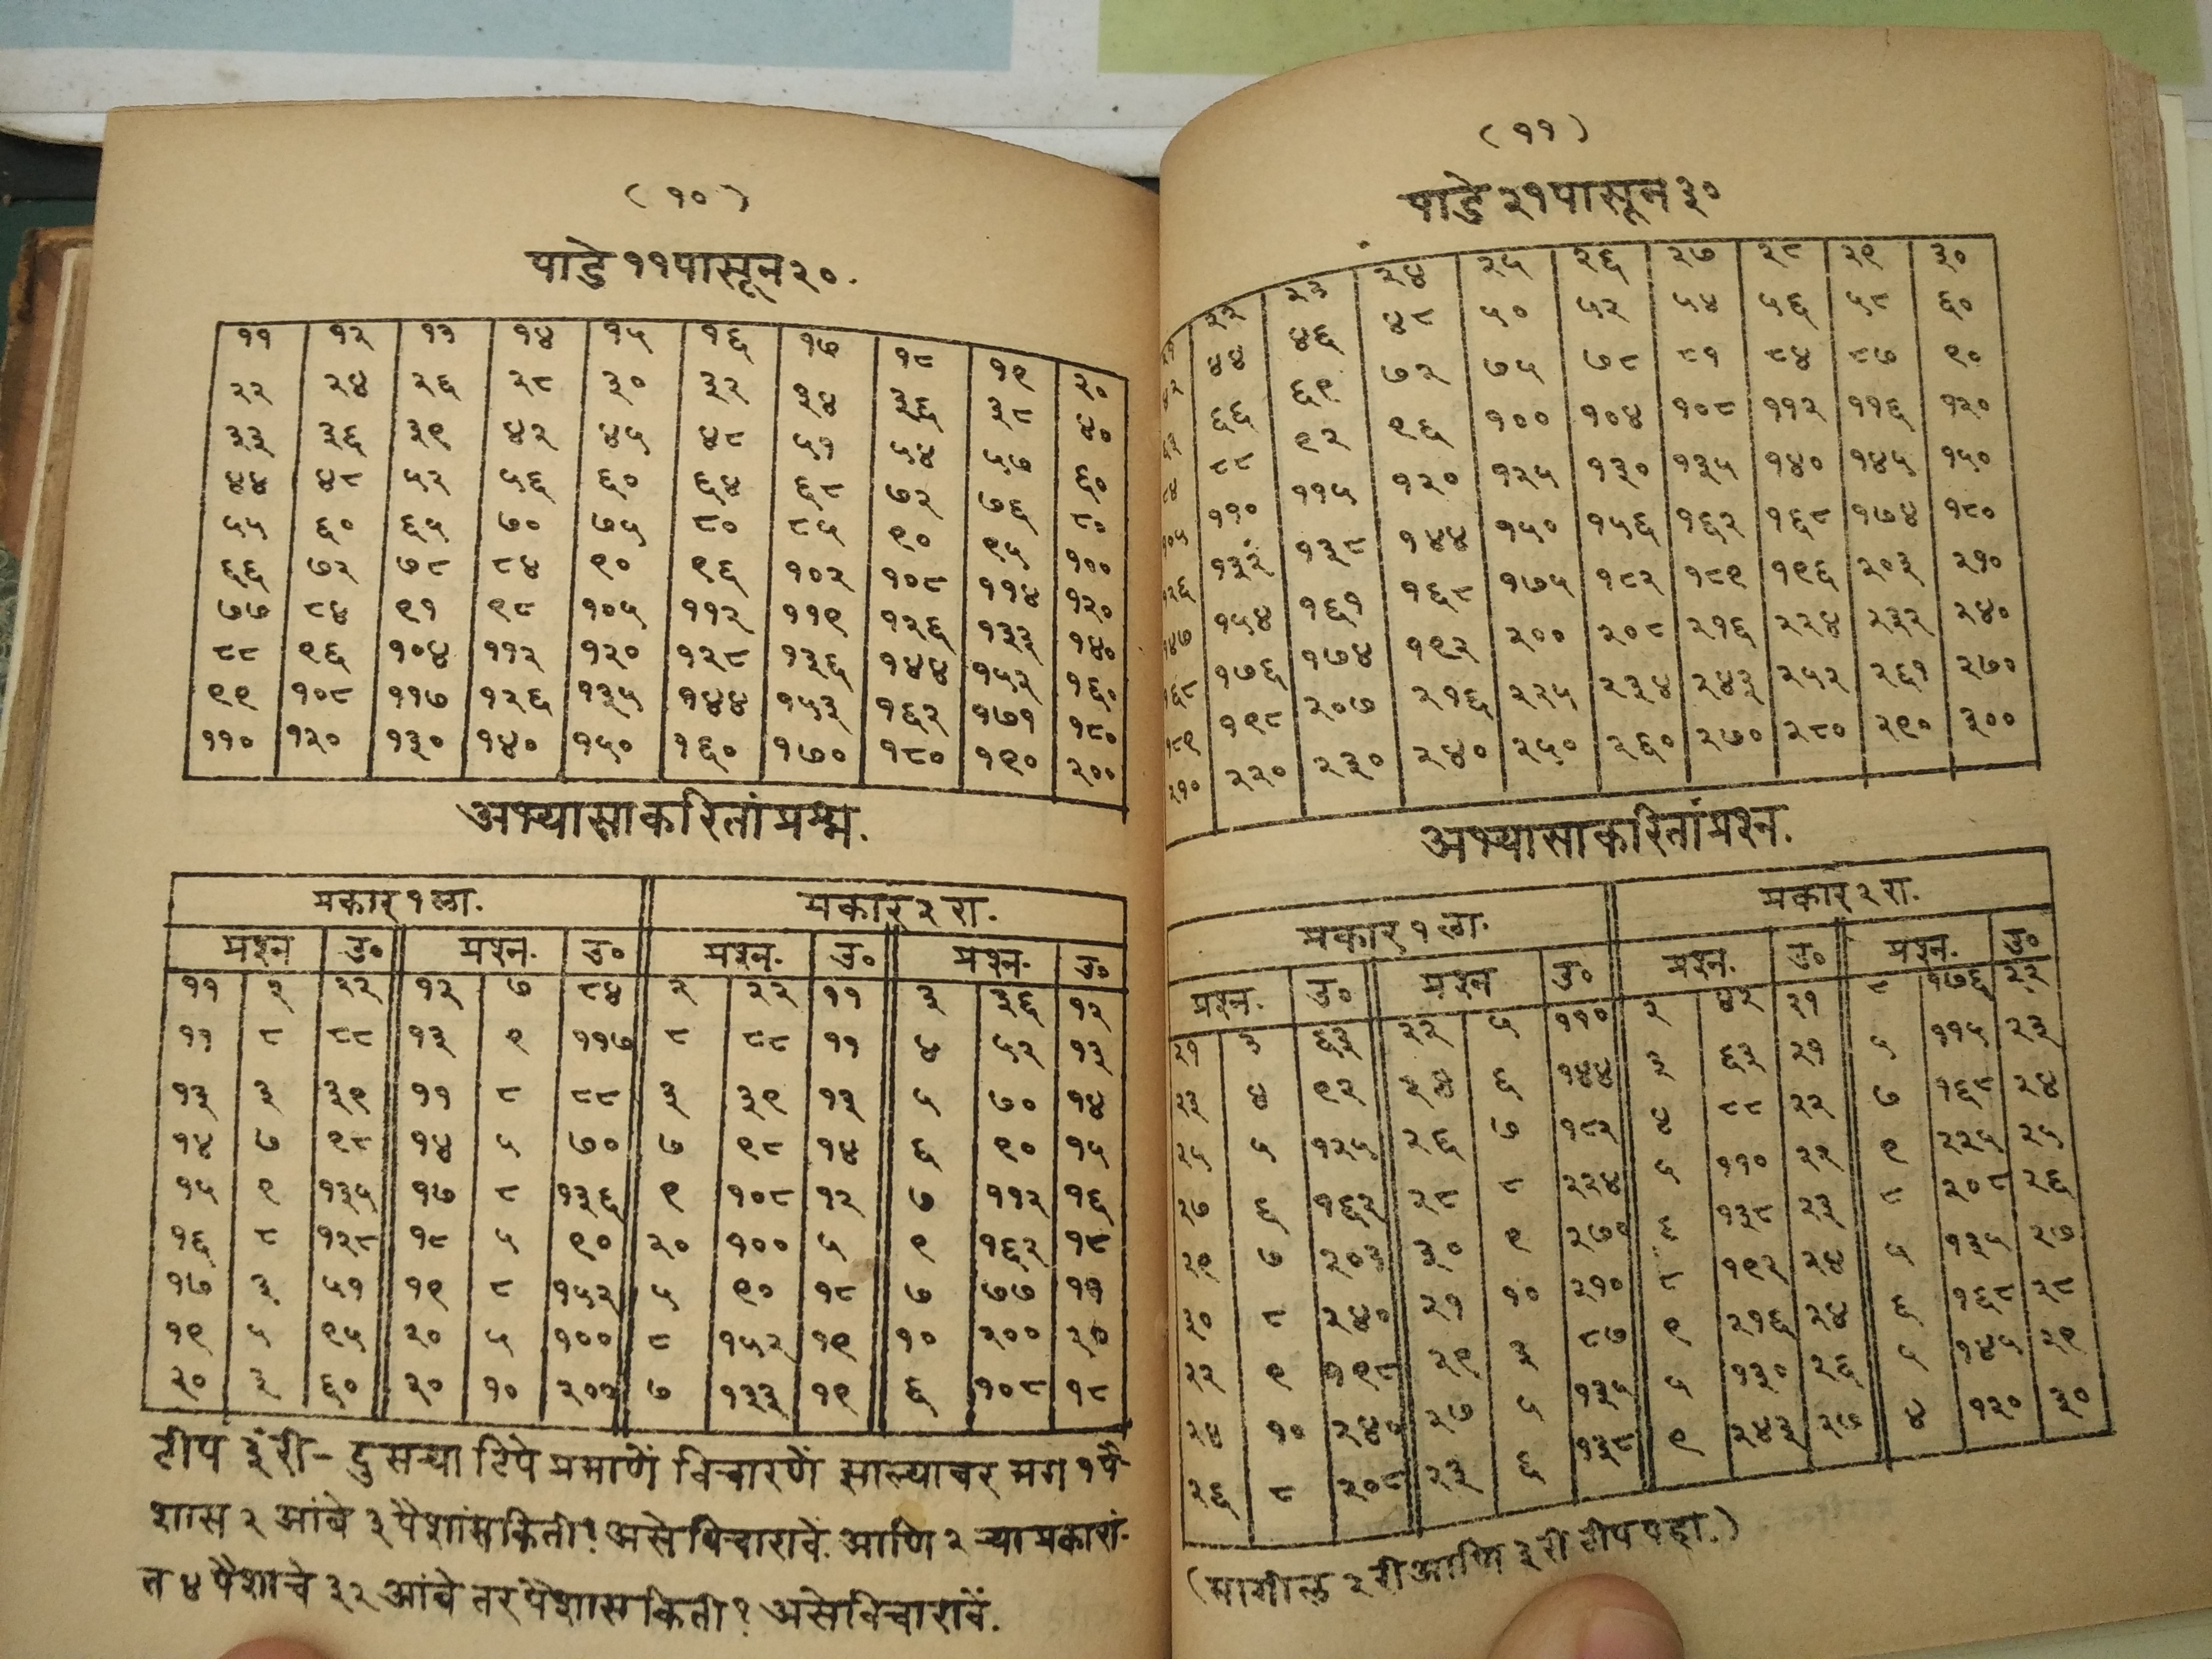 (१०)
पाडे ११ पासून २०.
११ १२ १३ १४ १५ १६ १७ १८ १९ २०
२२ २४ २६ २८ ३० ३२ ३४ ३६ ३८ ४०
३३ ३६ ३९ ४२ ४५ ४८ ५१ ५४ ५७ ६०
४४ ४८ ५२ ५६ ६० ६४ ६८ ७२ ७६ ८०
५५ ६० ६५ ७० ७५ ८० ८५ ९० ९५ १००
६६ ७२ ७८ ८४ ९० ९६ १०२ १०८ ११४ १२०
७७ ८४ ९१ ९८ १०५ ११२ ११९ १२६ १३३ १४०
८८ ९६ १०४ ११२ १२० १२८ १३६ १४४ १५२ १६०
९९ १०८ ११७ १२६ १३५ १४४ १५३ १६२ १७१ १८०
११० १२० १३० १४० १५० १६० १७० १८० १९० २००
अभ्यासाकरितां प्रश्न.
प्रकार १ ला. प्रकार २ रा.
प्रश्न उ० प्रश्न. उ० प्रश्न. उ० प्रश्न. उ०
११ २ २२ १२ ७ ८४ २ २२ ११ ३ ३६ १२
११ ८ ८८ १३ ९ ११७ ८ ८८ ११ ४ ५२ १३
१३ ३ ३९ ११ ८ ८८ ३ ३९ १३ ५ ७० १४
१४ ७ ९८ १४ ५ ७० ७ ९८ १४ ६ ९० १५
१५ ९ १३५ १७ ८ १३६ ९ १०८ १२ ७ ११२ १६
१६ ८ १२८ १८ ५ ९० २० १०० ५ ९ १६२ १८
१७ ३ ५१ १९ ८ १५२ ५ ९० १८ ७ ७७ ११
१९ ५ ९५ २० ५ १०० ८ १५२ १९ १० २०० २०
२० ३ ६० २० १० २०० ७ १३३ १९ ६ १०८ १८
टीप ३ री - दुसऱ्या टिपे प्रमाणें विचारणें झाल्यावर मग १ पै-
शास २ आंबे ३ पैशांस किती? असे विचारावे. आणि २ ऱ्या प्रकारां-
त ४ पैशाचे ३२ आंबे तर पैशास किती? असे विचारावें.
(११)
पाडे २१ पासून ३०
२२ २३ २४ २५ २६ २७ २८ २९ ३०
४४ ४६ ४८ ५० ५२ ५४ ५६ ५८ ६०
६६ ६९ ७२ ७५ ७८ ८१ ८४ ८७ ९०
८८ ९२ ९६ १०० १०४ १०८ ११२ ११६ १२०
१०५ ११० ११५ १२० १२५ १३० १३५ १४० १४५ १५०
१२६ १३२ १३८ १४४ १५० १५६ १६२ १६८ १७४ १८०
१४७ १५४ १६१ १६८ १७५ १८२ १८९ १९६ २०३ २१०
१६८ १७६ १७४ १९२ २०० २०८ २१६ २२४ २३२ २४०
१८९ १९८ २०७ २१६ २२५ २३४ २४३ २५२ २६१ २७०
२१० २२० २३० २४० २५० २६० २७० २८० २९० ३००
अभ्यासाकरितां प्रश्न.
प्रकार १ ला. प्रकार २ रा.
प्रश्न. उ० प्रश्न उ० प्रश्न. उ० प्रश्न. उ०
२१ ३ ६३ २२ ५ ११० २ ४२ २१ ८ १७६ २२
२३ ४ ९२ २४ ६ १४४ ३ ६३ २१ ५ ११५ २३
२५ ५ १२५ २६ ७ १८२ ४ ८८ २२ ७ १६८ २४
२७ ६ १६२ २८ ८ २२४ ५ ११० २२ ९ २२५ २५
२९ ७ २०३ ३० ९ २७० ६ १३८ २३ ८ २०८ २६
३० ८ २४० २१ १० २१० ८ १९२ २४ ५ १३५ २७
२२ ९ १९८ २९ ३ ८७ ९ २१६ २४ ६ १६८ २८
२४ १० २४० २७ ५ १३५ ५ १३० २६ ५ १४५ २९
२६ ८ २०८ २३ ६ १३८ ९ २४३ २७ ४ १२० ३०
(मागील २ री आणि ३ री टीप पहा.)